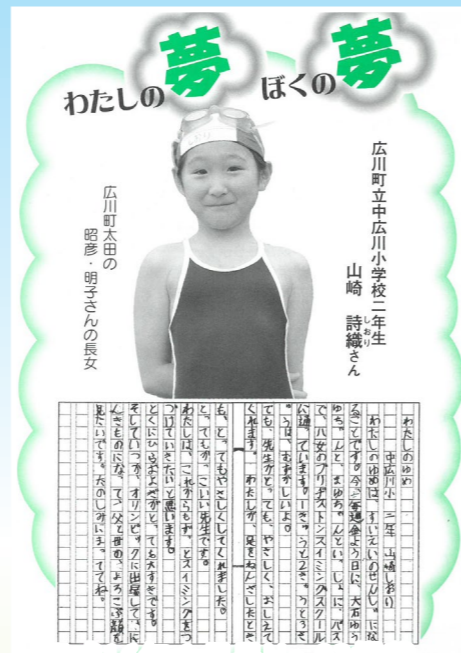 わたしの夢 ぼくの夢
広川町立中広川小学校二年生
山崎 詩織さん
しおり
広川町太田の
昭彦・明子さんの長女
わたしのゆめ
中広川小 二年 山崎しおり
わたしのゆめは、すいえいのせんしゅにな
ることです。今、一番
ゆちゃんと、まゆちゃんといっしょに、バス
で、八女のブリヂストンスイミングスクール
に通っています。
うは、むずかしいよ。
でも、先生がとっても、やさしく、おしえて
くれます。 わたしが、足をねんざしたとき
も、とってもやさしくしてくれました。
とってもかっこいい先生です。
わたしは、これからもずっとスイミングをつ
づけていきたいと思います。
とくにひらおよぎがとっても大すきです。
そしていつか、オリンピックに出場して、に
んきものになって、父と母の、よろこぶ顔を
見たいです。たのしみにまっててね。